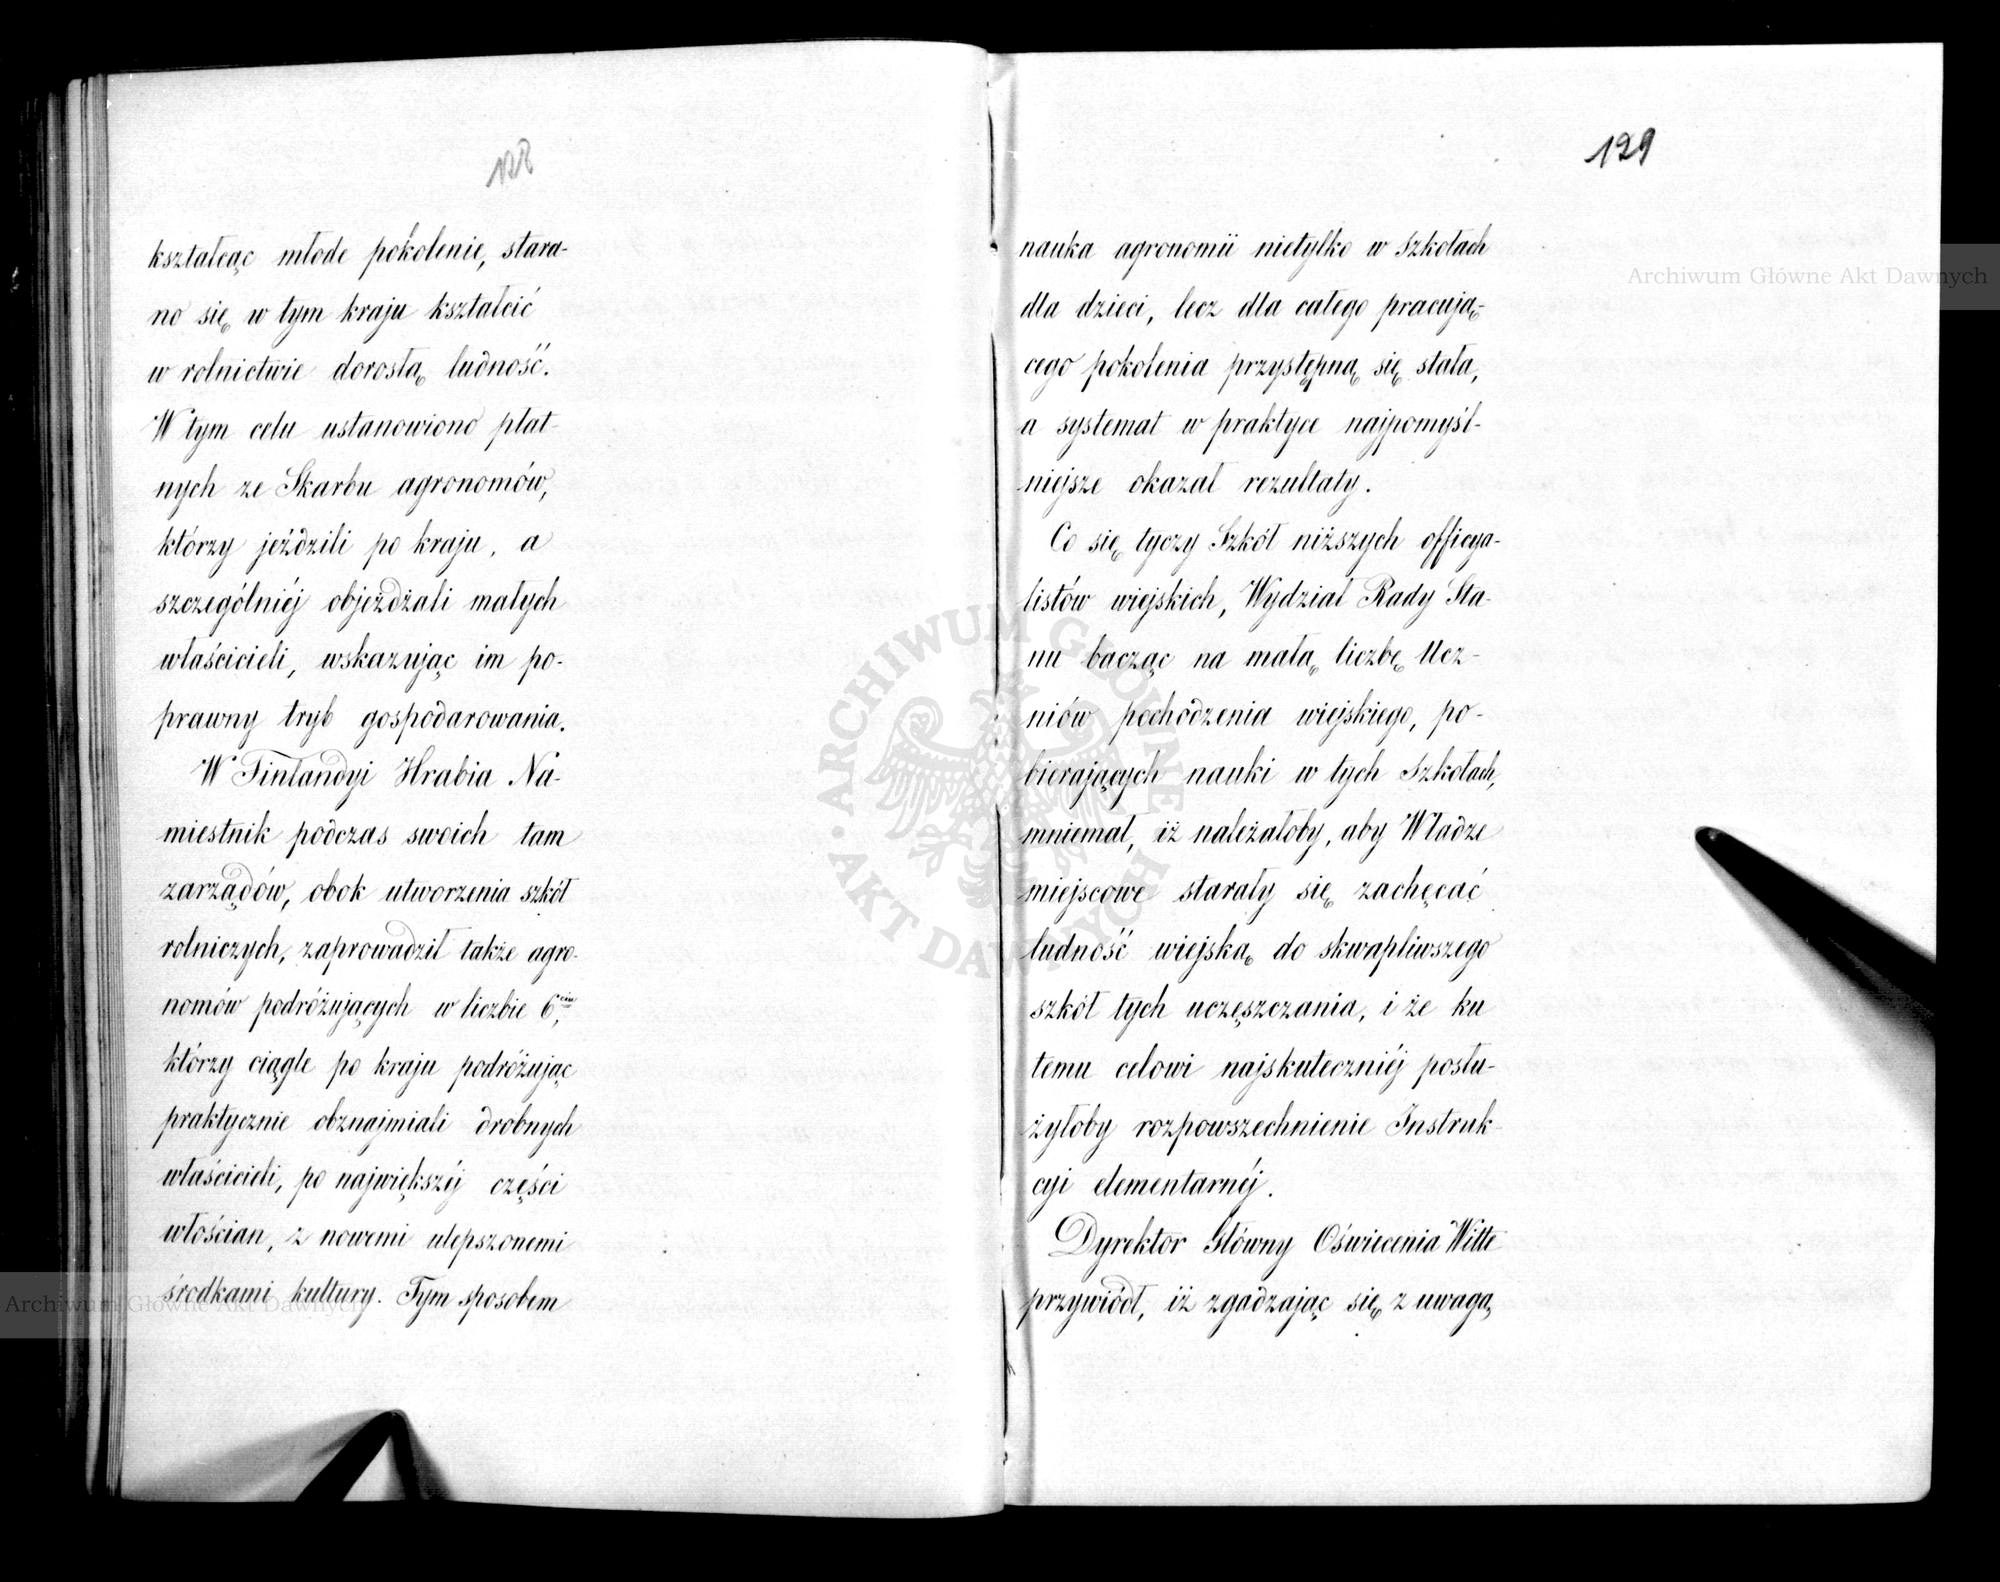 128
kształcąc młode pokolenie, stara-
no się w tym kraju kształcić
w rolnictwie dorosłą ludność.
W tym celu ustanowiono płat-
nych ze Skarbu agronomów,
którzy jeździli po kraju, a
szczególniéj objeżdżali małych
właścicieli, wskazując im po-
prawny tryb gospodarowania.
W Finlandyi Hrabia Na-
miestnik podczas swoich tam
zarządów, obok utworzenia szkół
rolniczych, zaprowadził także agro-
nomów podróżujących w liczbie 6ciu,
którzy ciągle po kraju podróżując
praktycznie obznajmiali drobnych
właścicieli, po największéj części
włościan, z nowemi ulepszonemi
środkami kultury. Tym sposobem
129
nauka agronomii nietylko w Szkołach
dla dzieci, lecz dla całego pracują-
cego pokolenia przystępną się stała,
a systemat w praktyce najpomyśl-
niejsze okazał rezultaty.
Co się tyczy Szkół niższych officya-
listów wiejskich, Wydział Rady Sta-
nu bacząc na małą liczbę Ucz-
niów pochodzenia wiejskiego, po-
bierających nauki w tych Szkołach,
mniemał, iż należałoby, aby Władze
miejscowe starały się zachęcać
ludność wiejską do skwapliwszego
szkół tych uczęszczania, i że ku
temu celowi najskuteczniéj posłu-
żyłoby rozpowszechnienie Instruk-
cyi elementarnéj.
Dyrektor Główny Oświecenia Witte
przywiódł, iż zgadzając się z uwagą
Archiwum Główne Akt Dawnych
Archiwum Główne Akt Dawnych
ARCHIWUM GŁÓWNE AKT DAWNYCH